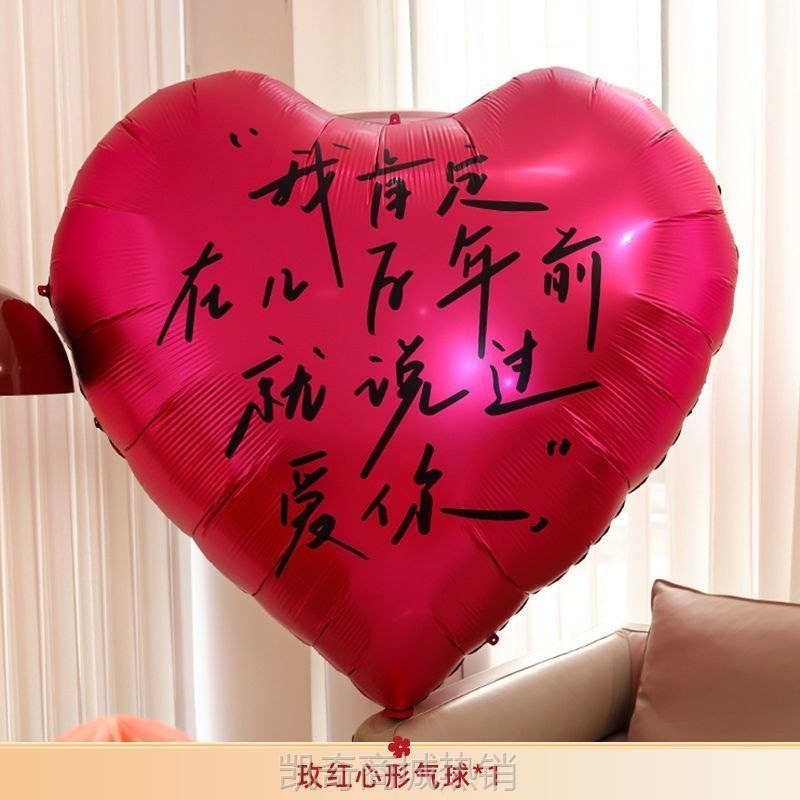 “我肯定
在几百年前
就说过
爱你，”
玫红心形气球*1
凯奇商城热销